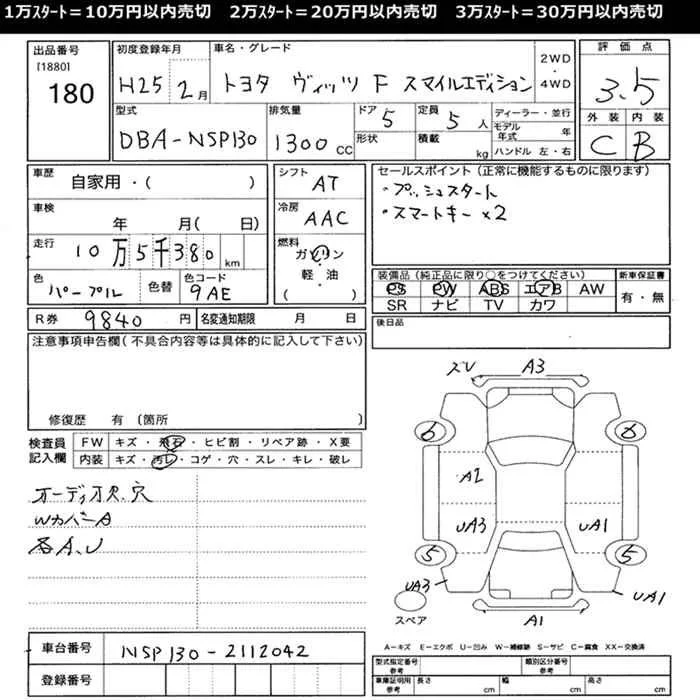 1万ｽﾀｰﾄ＝10万円以内売切 2万ｽﾀｰﾄ＝20万円以内売切 3万ｽﾀｰﾄ＝30万円以内売切
出品番号
[1880]
180
初度登録年月
H25 2月
車名・グレード
トヨタ ヴィッツ F スマイルエディション
2WD
・
4WD
評価点
3.5
外装 内装
C B
型式
DBA-NSP130
排気量
1300 CC
ドア 5
形状
定員 5 人
積載 kg
ディーラー・並行
モデル年式 年
ハンドル 左・右
車歴
自家用・( )
車検
年 月( 日)
走行
10万5千380 km
色
パープル
色替
色コード
9AE
シフト
AT
冷房
AAC
燃料
ガソリン
軽・油
( )
セールスポイント（正常に機能するものに限ります）
・プッシュスタート
・スマートキー×2
装備品（純正品に限り○をつけてください）
PS PW ABS エアB AW
SR ナビ TV カワ
新車保証書
有・無
R券 9840 円 名変通知期限 月 日
後日品
注意事項申告欄(不具合内容等は具体的に記入して下さい)
修復歴 有 (箇所
検査員
記入欄
FW キズ・飛石・ヒビ割・リペア跡・X要
内装 キズ・汚レ・コゲ・穴・スレ・キレ・破レ
オーディオレス、穴
WカバーA
各A、U
ズレ A3
6 6
A2
UA3 UA1
5 5
UA3 UA1
A1
スペア
A－キズ E－エクボ U－凹み W－補修跡 S－サビ C－腐食 XX－交換済
車台番号 NSP130-2112042
登録番号
型式指定番号
参考
類別区分番号
参考
車庫証明用
参考
長さ cm 幅 cm 高さ cm